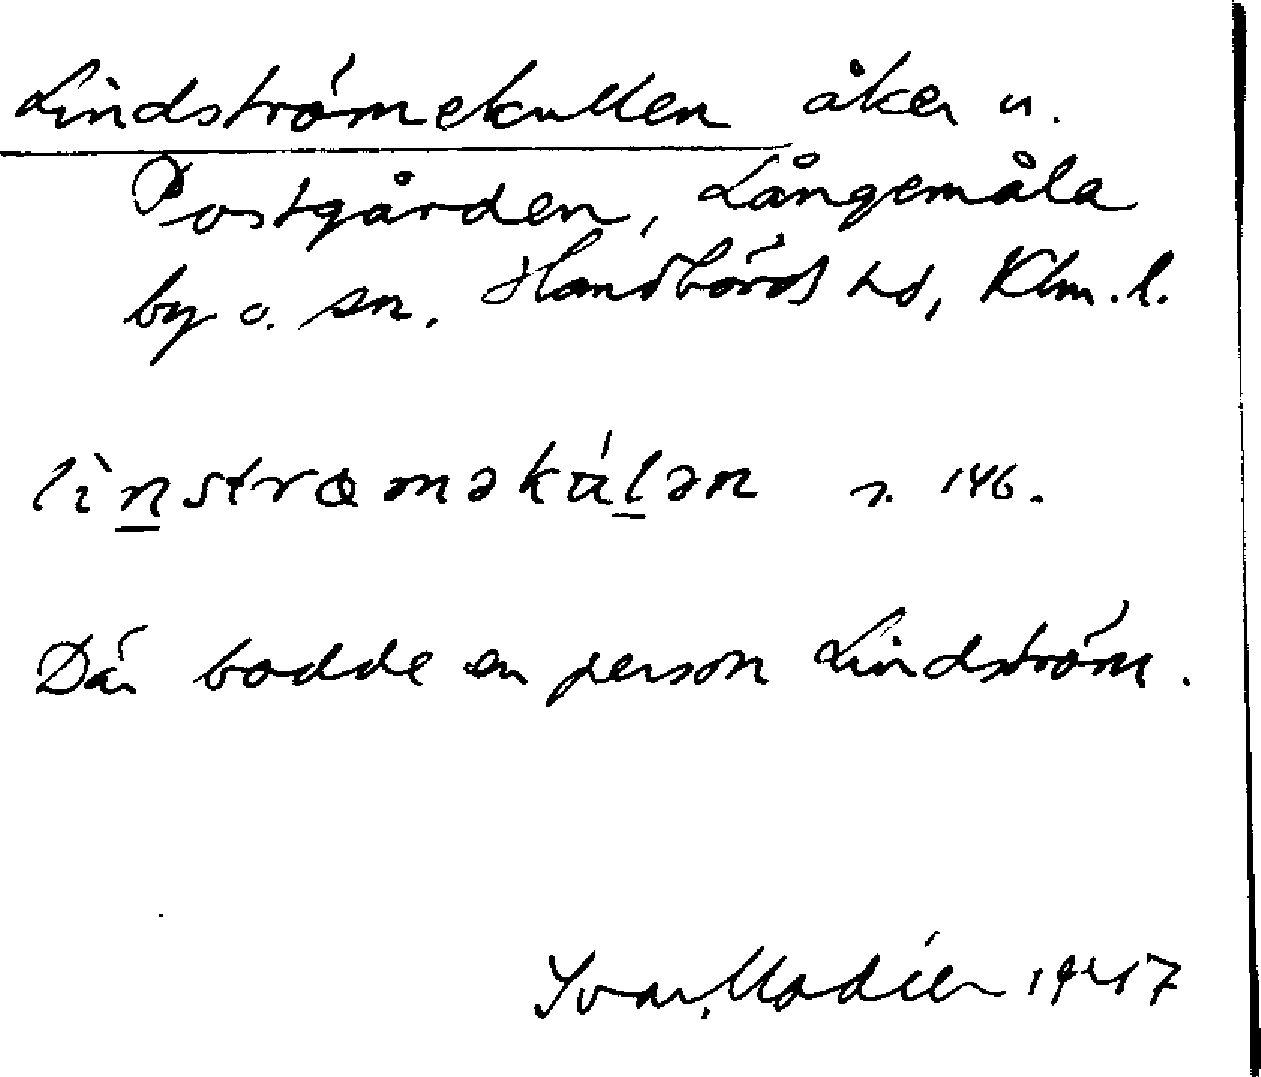 Lindströmekullen åker u.
Postgården, Långemåla
by o. sn. Handbörds hd, Klm. l.
lìnstrøməkúlən n. 146.
Där bodde en person Lindström.
Ivar Modéer 1947